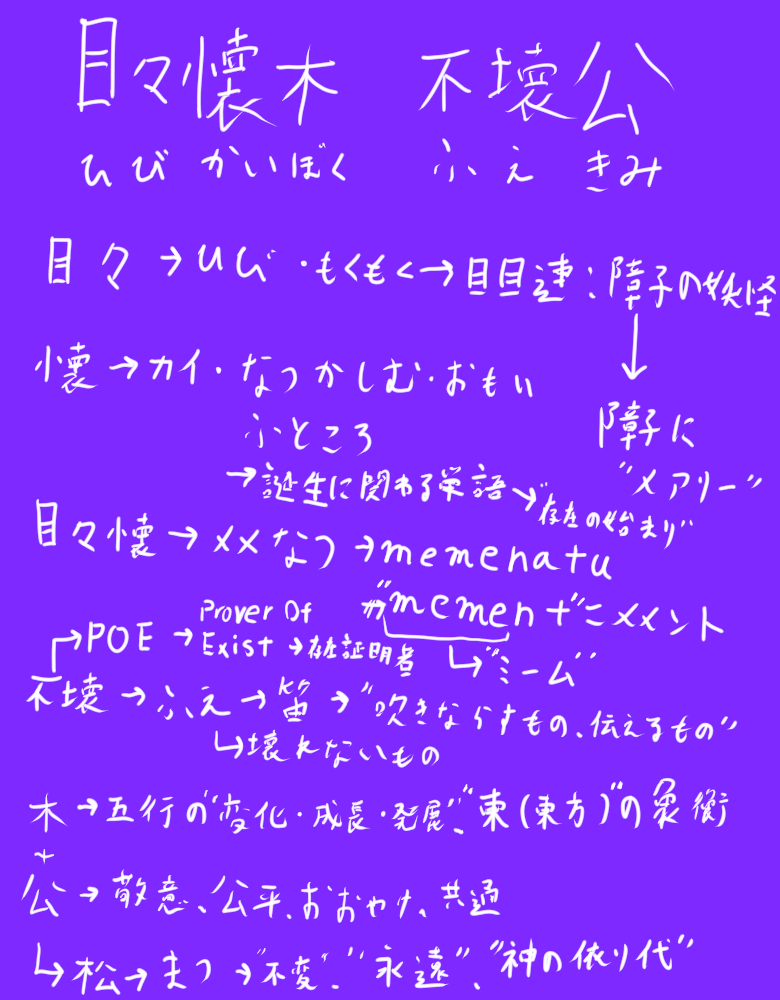 目々懐木 不壊公
ひび かいぼく ふえ きみ
目々→ひび・もくもく→目目連：障子の妖怪
↓
懐→カイ・なつかしむ・おもい
ふところ
障子に
"メアリー"
→誕生に関わる単語→"存在の始まり"
目々懐→メメなつ→memenatu
"mement"=メメント
→"ミーム"
→POE→Prover Of
Exist→存在証明者
不壊→ふえ→笛→"吹きならすもの、伝えるもの"
→壊れないもの
木→五行の"変化・成長・発展"、"東(東方)"の象衝
+
公→敬意、公平、おおやけ、共通
→松→まつ→"不変"、"永遠"、"神の依り代"